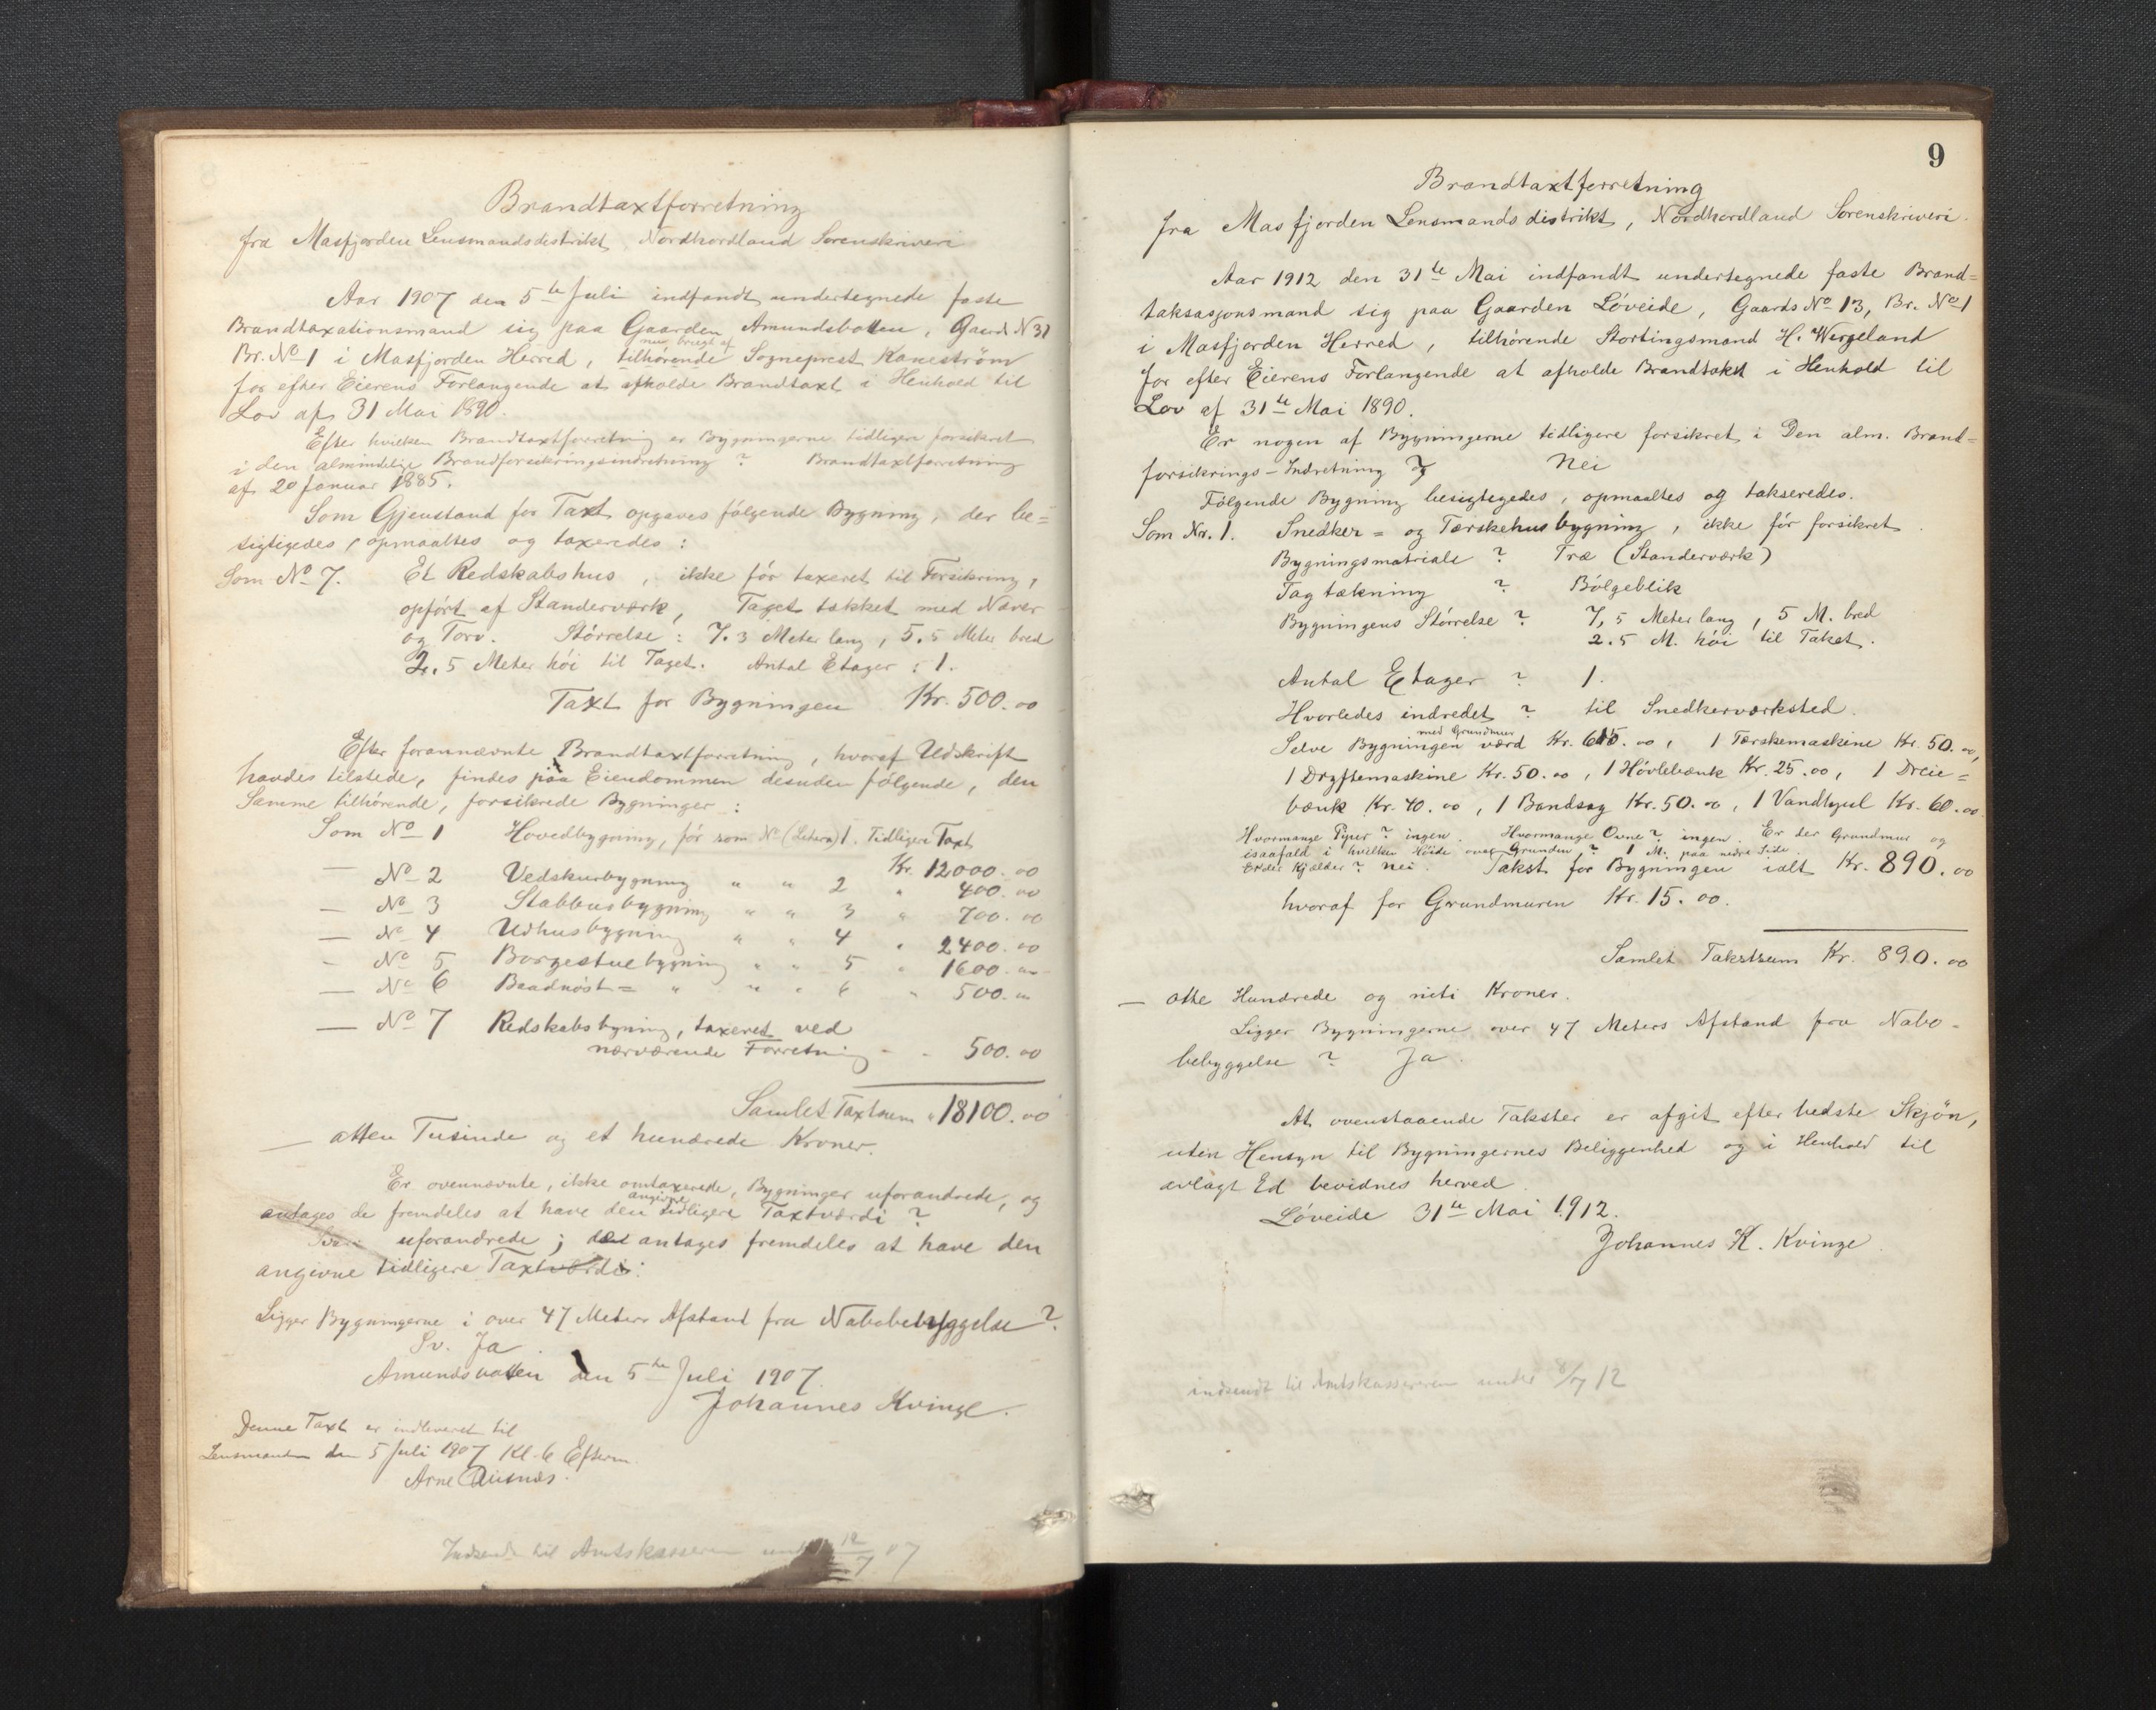 Brandtaxtforretning
fra Masfjorden Lensmandsdistrikt, Nordhordland Sorenskriveri
Aar 1907 den 5te Juli indfandt undertegnede faste
Brandtaxationsmand sig paa Gaarden Amundsbotten, Gaards No 31
Br. No 1 i Masfjorden Herred, tilhørende Sogneprest Kaneström
nu brugt af
for efter Eierens Forlangende at afholde Brandtaxt i Henhold til
Lov af 31 Mai 1890.
Efter hvilken Brandtaxtforretning er Bygningerne tidligere forsikret
i den almindelige Brandforsikringsindretning? Brandtaxtforretning
af 20 Januar 1885.
Som Gjenstand for Taxt opgaves følgende Bygning, der be=
sigtigedes, opmaaltes og taxeredes:
Som No 7. Et Redskabshus, ikke før taxeret til Forsikring,
opført af Standerværk, Taget tækket med Næver
og Torv. Størrelse: 7.3 Meter lang, 5.5 Meter bred
2.5 Meter høi til Taget. Antal Etager: 1.
Taxt for Bygningen Kr. 500.00
Efter forannævnte Brandtaxtforretning, hvoraf Udskrift
havdes tilstede, findes paa Eiendommen desuden følgende, den
Samme tilhørende, forsikrede Bygninger:
Som No 1 Hovedbygning, før som No (Litera) 1. Tidligere Taxt
Kr. 12000.00
— No 2 Vedskurbygning " " 2 " 400.00
— No 3 Stabbursbygning " " 3 " 700.00
— No 4 Udhusbygning " " 4 " 2400.00
— No 5 Borgestuebygning " " 5 " 1600.00
— No 6 Baadnøst= " " " 6 " 500.00
— No 7 Redskabsbygning, taxeret ved
nærværende Forretning - - 500.00
Samlet Taxtsum " 18100.00
— atten Tusinde og et hundrede Kroner.
Er ovennævnte, ikke omtaxerede, Bygninger uforandrede, og
antages de fremdeles at have den angivne tidligere Taxtværdi?
Svar uforandrede; de antages fremdeles at have den
angivne tidligere Taxtværdi.
Ligger Bygningerne i over 47 Meters Afstand fra Nabobebyggelse?
Sv. Ja.
Amundsbotten den 5te Juli 1907.
Johannes Kvinge.
Denne Taxt er indleveret til
Lensmanden den 5 Juli 1907 Kl. 6 Efterm.
Arne
Indsendt til Amtskasseren under 12/7 07
9
Brandtaxtforretning
fra Masfjorden Lensmandsdistrikt, Nordhordland Sorenskriveri.
Aar 1912 den 31te Mai indfandt undertegnede faste Brand=
taksasjonsmand sig paa Gaarden Løveide, Gaards No 13, Br. No 1
i Masfjorden Herred, tilhørende Stortingsmand H. Wergeland
for efter Eierens Forlangende at afholde Brandtakst i Henhold til
Lov af 31te Mai 1890.
Er nogen af Bygningerne tidligere forsikret i Den alm. Brand=
forsikrings-Indretning? Nei
Følgende Bygning besigtegedes, opmaaltes og takseredes.
Som Nr. 1. Snedker= og Tærskehusbygning, ikke før forsikret.
Bygningsmatriale? Træ (Standerværk)
Tagtækning? Bølgeblik
Bygningens Størrelse? 7,5 Meter lang, 5 M. bred
2.5 M. høi til Taket.
Antal Etager? 1.
Hvorledes indredet? til Snedkerværksted.
Selve Bygningen med Grundmur værd Kr. 615.00, 1 Tærskemaskine Kr. 50.00,
1 Dryftemaskine Kr. 50.00, 1 Høvlebænk Kr. 25.00, 1 Dreie=
bænk Kr. 40.00, 1 Bandsag Kr. 50.00, 1 Vandhjul Kr. 60.00
Hvormange Piper? ingen. Hvormange Ovne? ingen. Er der Grundmur og
isaafald i hvilken Høide over Grunden? 1 M. paa nedre Side.
Er der Kjælder? nei. Takst for Bygningen ialt Kr. 890.00
hvoraf for Grundmuren Kr. 15.00.
Samlet Takstsum Kr. 890.00
— otte Hundrede og niti Kroner.
Ligger Bygningerne over 47 Meters Afstand fra Nabo-
bebyggelse? Ja.
At ovenstaaende Takster er afgit efter bedste Skjøn,
uten Hensyn til Bygningernes Beliggenhed og i Henhold til
avlagt Ed bevidnes herved.
Løveide 31te Mai 1912.
Johannes K. Kvinge.
indsendt til Amtskassereren under 8/7 12